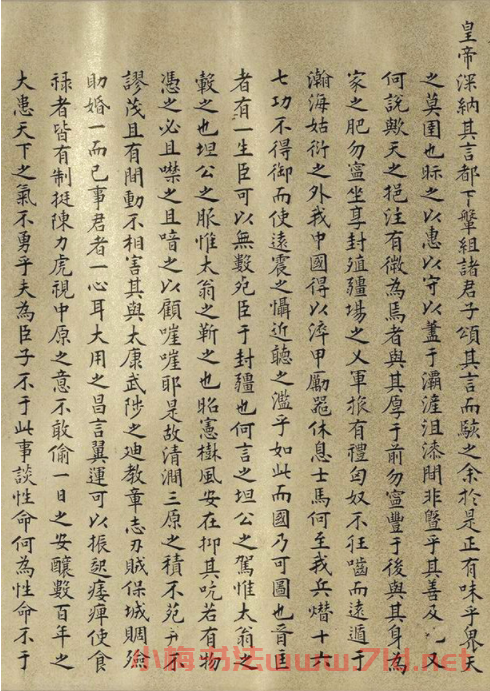 皇帝深納其言都下鞶組諸君子頌其言而駭之余於是正有味乎畀天
之莫圉也眎之以惠以守以蓋于灞滻沮漆間非曁乎其善及又
何說歟天之挹注有微為馬者與其厚于前勿寧豐于後與其身為
家之肥勿寧坐享封殖疆場之乂軍旅有禮匈奴不狂嚙而遠遁于
瀚海姑衍之外我中國得以淬甲勵器休息士馬何至我兵熸十六
七功不得御而使遠震之懾近聽之濫乎如此而國乃可圖也晉臣
者有一生臣可以無數死臣于封疆也何言之坦公之駕惟太翁之
轂之也坦公之脈惟太翁之靳之也昭憲樹風安在抑其吭若有物
憑之必且噤之且喑之以顧嗟嗟耶是故清澗三原之積不苑不
謬茂且有間動不相害其與太康武陟之迪教章志刃賊保城賙
助婚一而已事君者一心耳大用之昌言翼運可以振起痿痺使食
祿者皆有制挺陳力虎視中原之意不敢偷一日之安釀數百年之
大患天下之氣不勇乎夫為臣子不于此事談性命何為性命不于
小梅书法www.7kl.net